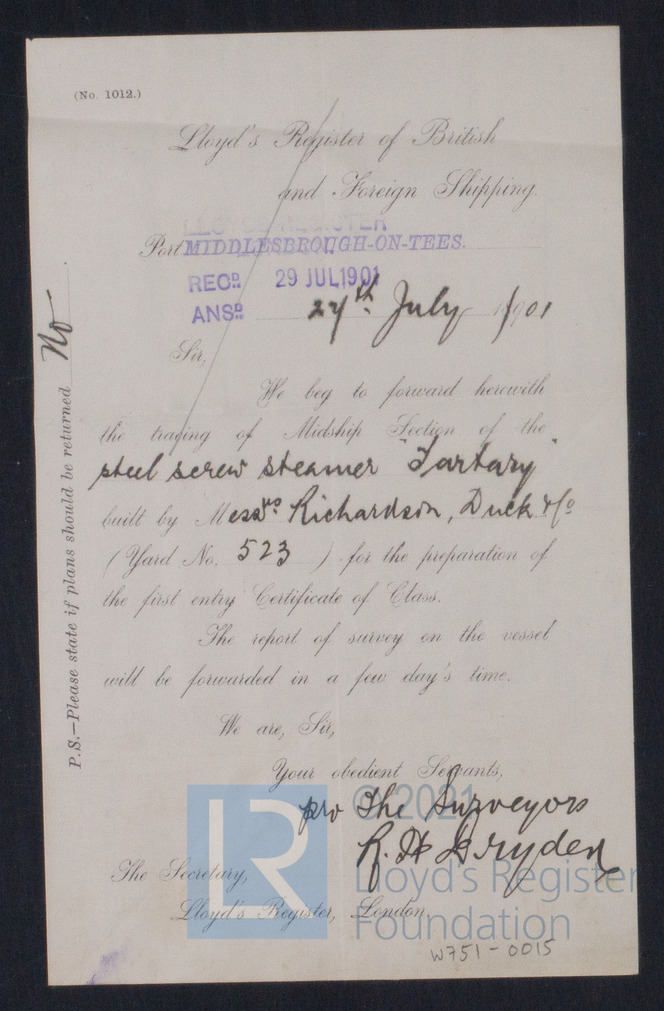 (No. 1012.)
Lloyd's Register of British
and Foreign Shipping.
LLOYDS REGISTER
Port MIDDLESBROUGH-ON-TEES.
REC'D 29 JUL 1901
ANS'D
27th July 1901
Sir,
We beg to forward herewith
the tracing of Midship Section of the
steel screw steamer "Tartary"
built by Messrs Richardson, Duck & Co
(Yard No. 523) for the preparation of
the first entry Certificate of Class.
The report of survey on the vessel
will be forwarded in a few day's time.
We are, Sir,
Your obedient Servants,
pro The Surveyors
R. H.
The Secretary,
Lloyd's Register, London.
P.S.—Please state if plans should be returned No
LR
© 2021
Lloyd's Register
Foundation
W751-0015